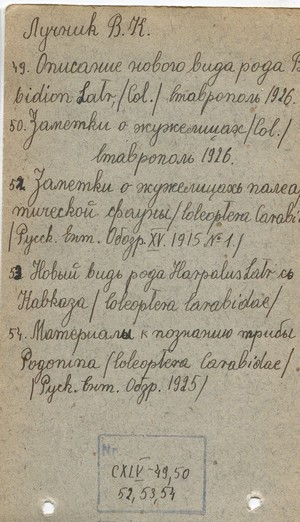 Лучник В.К.
49. Описание нового вида рода B
bidion Latr, /Col./ Ставрополь 1926.
50. Заметки о жужелицах /Col./
Ставрополь 1926.
52. Заметки о жужелицахъ палеа
тической фауны /Coleoptera Carabi
/Русск. Ент. Обозр. XV. 1915 №1./
53 Новый видъ рода Harpalus Latr съ
Кавказа / Coleoptera Carabidae/
54. Материалы к познанию трибы
Pogonina /Coleoptera Carabidae/
/Русск. Ент. Обзр. 1925/
Nr.
CXLV-49,50
52,53,54